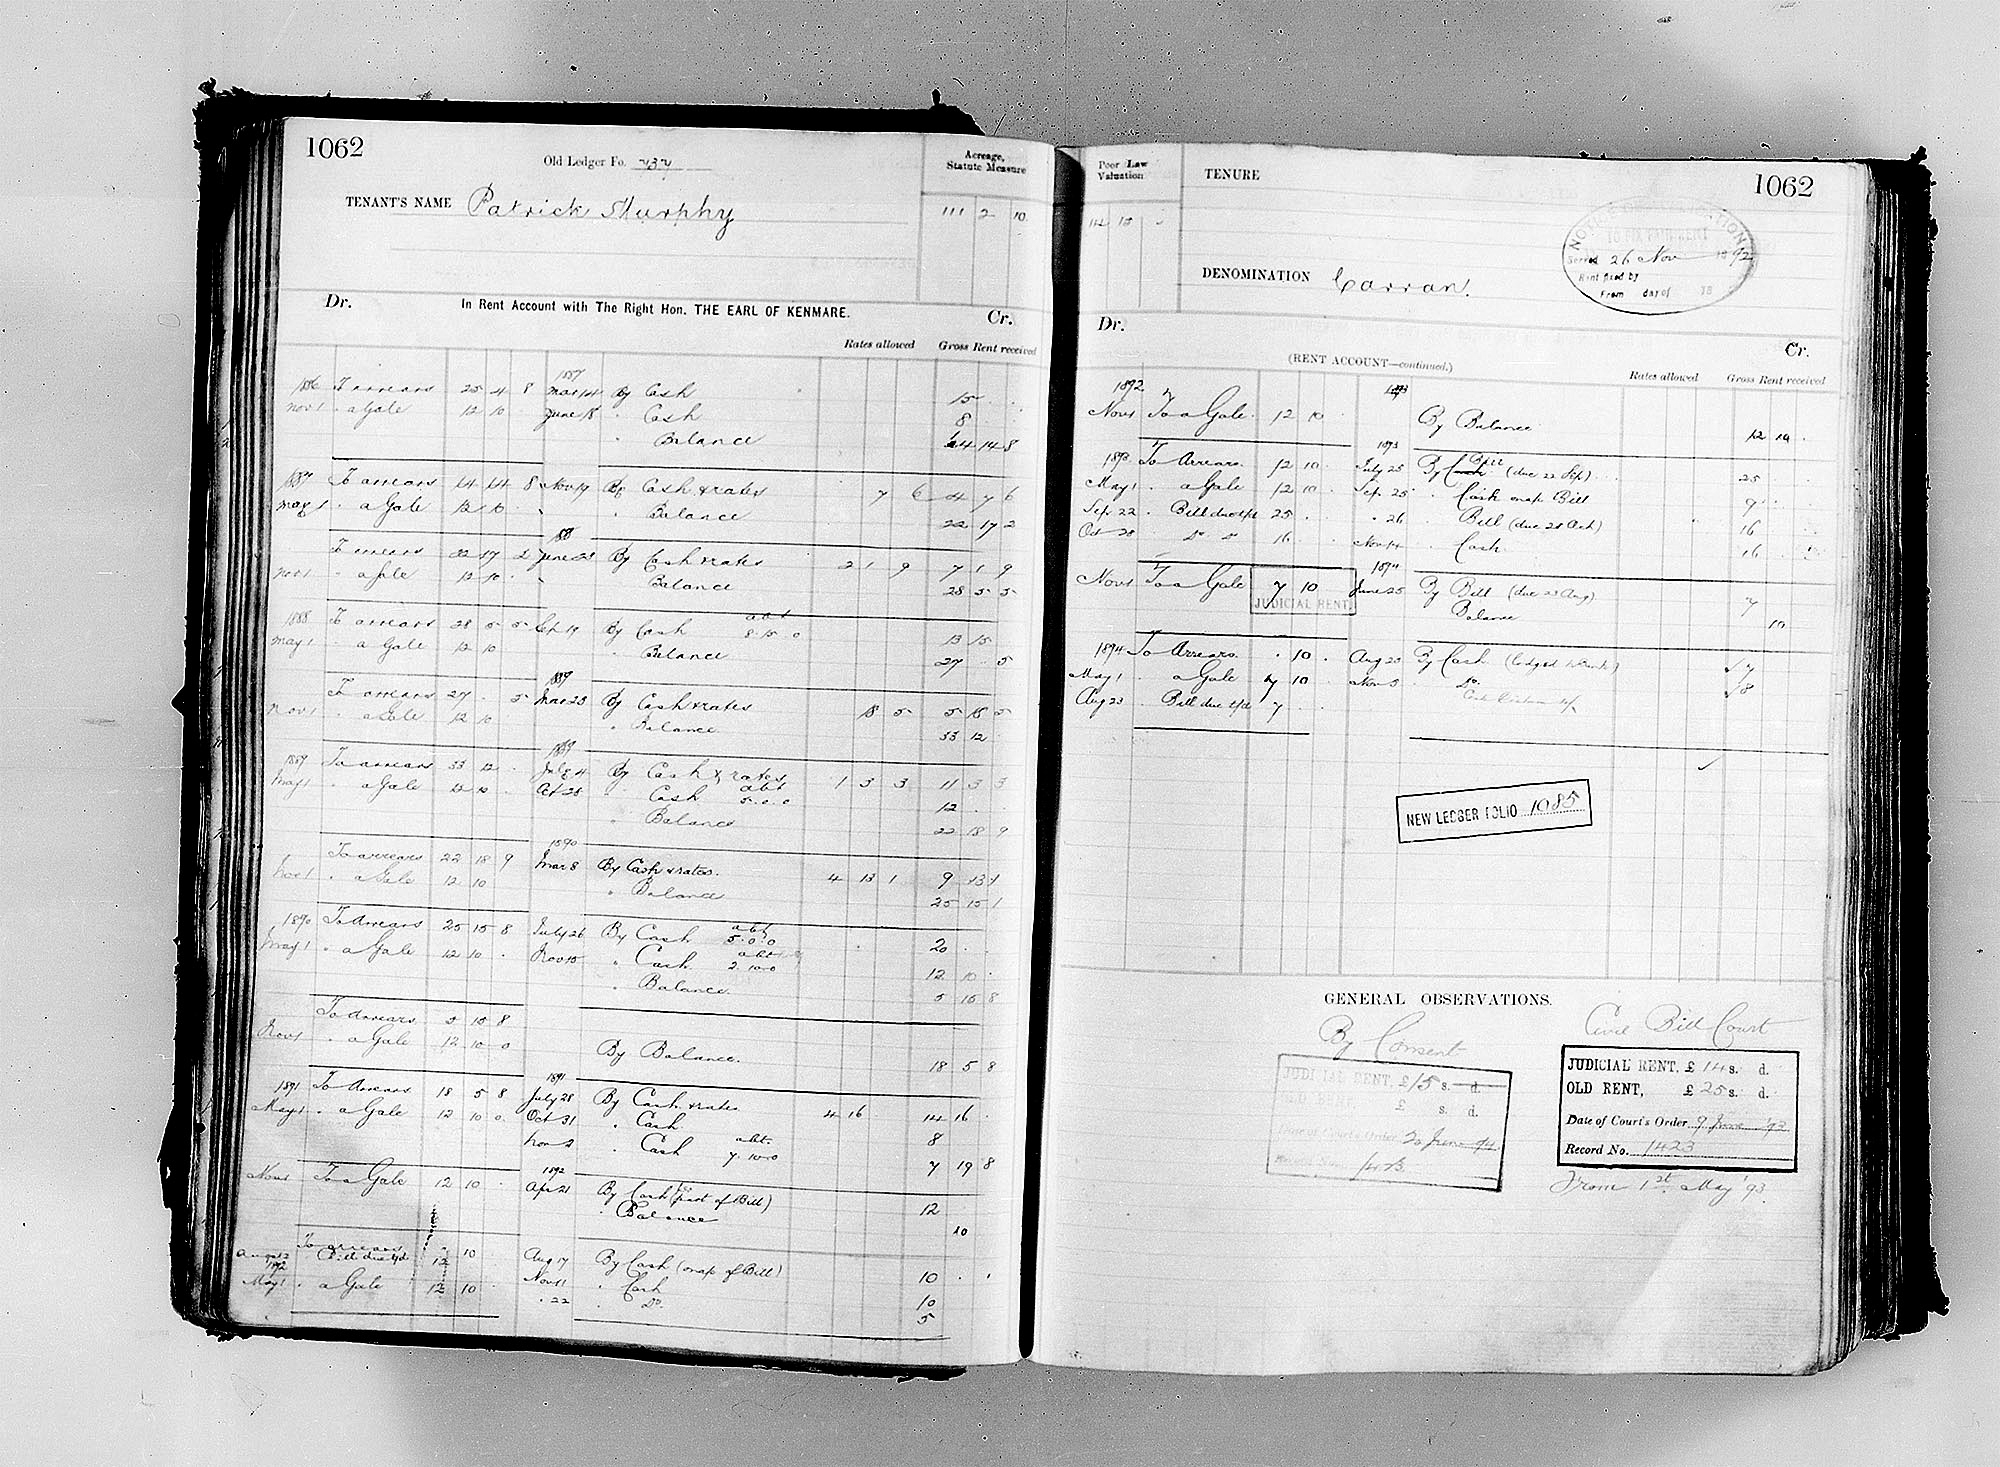 1062
Old Ledger Fo. 737
Acreage, Statute Measure
TENANT'S NAME Patrick Murphy
111 2 10
Dr. In Rent Account with The Right Hon. THE EARL OF KENMARE. Cr.
Rates allowed Gross Rent received
1887
1886 To arrears 25 4 8 Mar 14 By Cash 15
Nov 1 " a Gale 12 10 June 18 " Cash 8
" Balance 14 14 8
1887 To arrears 14 14 8 Nov 19 By Cash & rates 7 6 4 7 6
May 1 " a Gale 12 10 " Balance 22 17 2
88
To arrears 22 17 2 June 23 By Cash & rates 2 1 9 7 1 9
Nov 1 " a Gale 12 10 Balance 28 5 5
1888 To arrears 28 5 5 Sep 19 By Cash abt 8 15 0 13 15
May 1 " a Gale 12 10 " Balance 27 5
1889
To arrears 27 5 Mar 23 By Cash & rates 18 5 5 18 5
Nov 1 " a Gale 12 10 " Balance 33 12
1889
1889 To arrears 33 12 July 4 By Cash & rates 1 3 3 11 3 3
May 1 " a Gale 12 10 Oct 28 " Cash abt 5.0.0 12
" Balance 22 18 9
1890
To arrears 22 18 9 Mar 8 By Cash & rates. 4 13 1 9 13 1
Nov 1 " a Gale 12 10 " Balance 25 15 8
1890 To Arrears 25 15 8 July 26 By Cash abt 5.0.0 20
May 1 " a Gale 12 10 Nov 15 " Cash abt 2.10.0 12 10
" Balance 5 15 8
To Arrears 5 15 8
Nov 1 " a Gale 12 10 0 By Balance. 18 5 8
1891
1891 To Arrears 18 5 8 July 28 By Cash & rates 4 16 14 16
May 1 " a Gale 12 10 0 Oct 31 " Cash 8
Nov 2 " Cash abt. 7.10.0 7 19 8
1892
Nov 1 To a Gale 12 10 Apr 21 By Cash (part of Bill) 12
" Balance 10
To arrears 10
Bill due 12 Aug 17 By Cash (on a/c of Bill) 10
1892
May 1 " a Gale 12 10 Nov 11 " Cash 10
" 22 " Do 5
Poor Law Valuation
TENURE
1062
NOTICE OF APPLICATION
TO FIX FAIR RENT
Served 26 Nov 1892
Rent fixed by
From day of 18
DENOMINATION Carran.
Dr. Cr.
(RENT ACCOUNT—continued.)
Rates allowed Gross Rent received
1892 1893
Nov 1 To a Gale 12 10 By Balance 12 10
1893
1893 To Arrears 12 10 July 25 By Cash Bill (due 22 Sep) 25
May 1 " a Gale 12 10 Sep. 25 " Cash on a/c Bill 9
Sep 22 " Bill due 25 " 26 " Bill (due 28 Oct) 16
Oct 28 " Do Do 16 Nov 14 " Cash 16
1894
Nov 1 To a Gale 7 10 June 25 By Bill (due 23 Aug) 7
JUDICIAL RENT
Balance 10
1894 To Arrears 10 Aug 23 By Cash (lodged Bank) 7
May 1 " a Gale 7 10 Nov 3 " Do. 8
Aug 23 " Bill due 7
NEW LEDGER FOLIO 1085
GENERAL OBSERVATIONS.
By Consent
JUDICIAL RENT, £15 s. d.
£ s. d.
Date of Court's Order 20 June 94
Record No.
Civil Bill Court
JUDICIAL RENT, £14 s. d.
OLD RENT, £25 s. d.
Date of Court's Order 9 June '93
Record No. 1423
From 1st May '93.